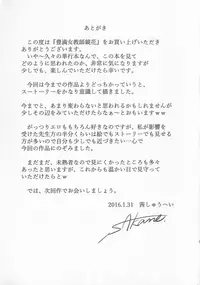 あとがき
この度は『豊満女教師鏡花』をお買い上げいただき
ありがとうございます。
いや〜久々の単行本なんで、この本を見て
どのように思われたのか、非常に気になりますが
少しでも、楽しんでいただけたら幸いです。
今回は今までの作品よりどっちかっていうと、
ストーリーをかなり意識して描きました。
今までと、あまり変わらないと思われるかもしれませんが
少しその辺をみていただけたらなぁなんて思ってますw
がっつりエロももちろん好きなのですが、私が影響を
受けた先生方の半分くらいは絵でもストーリーでも見せる
方が多いので自分も少しでも近づきたい一心で
今回の作品にのぞみました。
まだまだ、未熟者なので見にくかったところも多々
あったと思いますが、これからも温かい目で見守って
いただけたらとw w
では、次回作でお会いしましょう。
2016.1.31 茜しゅうへい
SAkane.